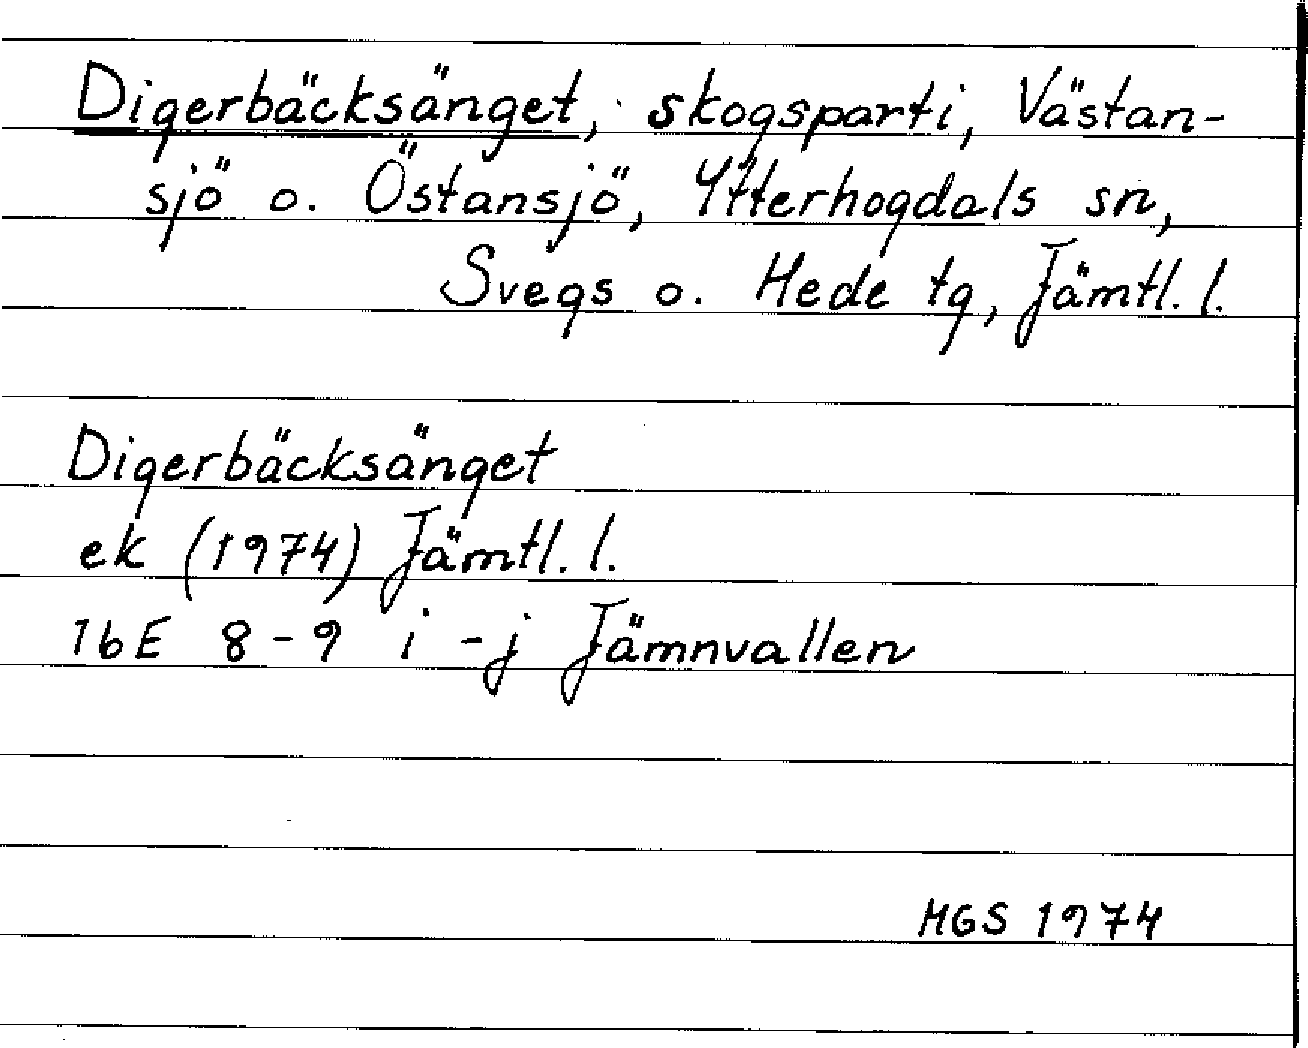 Digerbäcksänget, skogsparti, Västan-
sjö o. Östansjö, Ytterhogdals sn,
Svegs o. Hede tg, Jämtl. l.
Digerbäcksänget
ek (1974) Jämtl. l.
16E 8-9 i-j Jämnvallen
MGS 1974